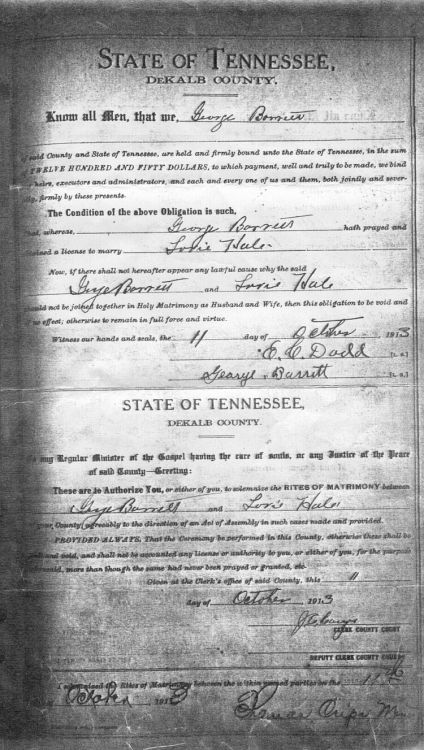 STATE OF TENNESSEE,
DEKALB COUNTY.
Know all Men, that we, George Barrett
of said County and State of Tennessee, are held and firmly bound unto the State of Tennessee, in the sum
TWELVE HUNDRED AND FIFTY DOLLARS, to which payment, well and truly to be made, we bind
heirs, executors and administrators, and each and every one of us and them, both jointly and sever-
firmly by these presents.
The Condition of the above Obligation is such,
whereas, George Barrett hath prayed and
a license to marry Hale
Now, if there shall not hereafter appear any lawful cause why the said
Barrett and Hale
should not be joined together in Holy Matrimony as Husband and Wife, then this obligation to be void and
no effect; otherwise to remain in full force and virtue.
Witness our hands and seals, the 11 day of October 1913
E. C. Dodd [L. S.]
Barrett [L. S.]
STATE OF TENNESSEE,
DEKALB COUNTY.
any Regular Minister of the Gospel having the care of souls, or any Justice of the Peace
of said County—Greeting:
These are to Authorize You, or either of you, to solemnize the RITES OF MATRIMONY between
Barrett and Hale
your County agreeably to the direction of an Act of Assembly in such cases made and provided.
PROVIDED ALWAYS, That the Ceremony be performed in this County, otherwise these shall be
and void, and shall not be accounted any license or authority to you, or either of you, for the purpose
said, more than though the same had never been prayed or granted, etc.
Given at the Clerk's office of said County, this 11
day of October 1913
CLERK COUNTY COURT
DEPUTY CLERK COUNTY COURT
I solemnized the Rites of Matrimony between the within named parties on the 11
191 3